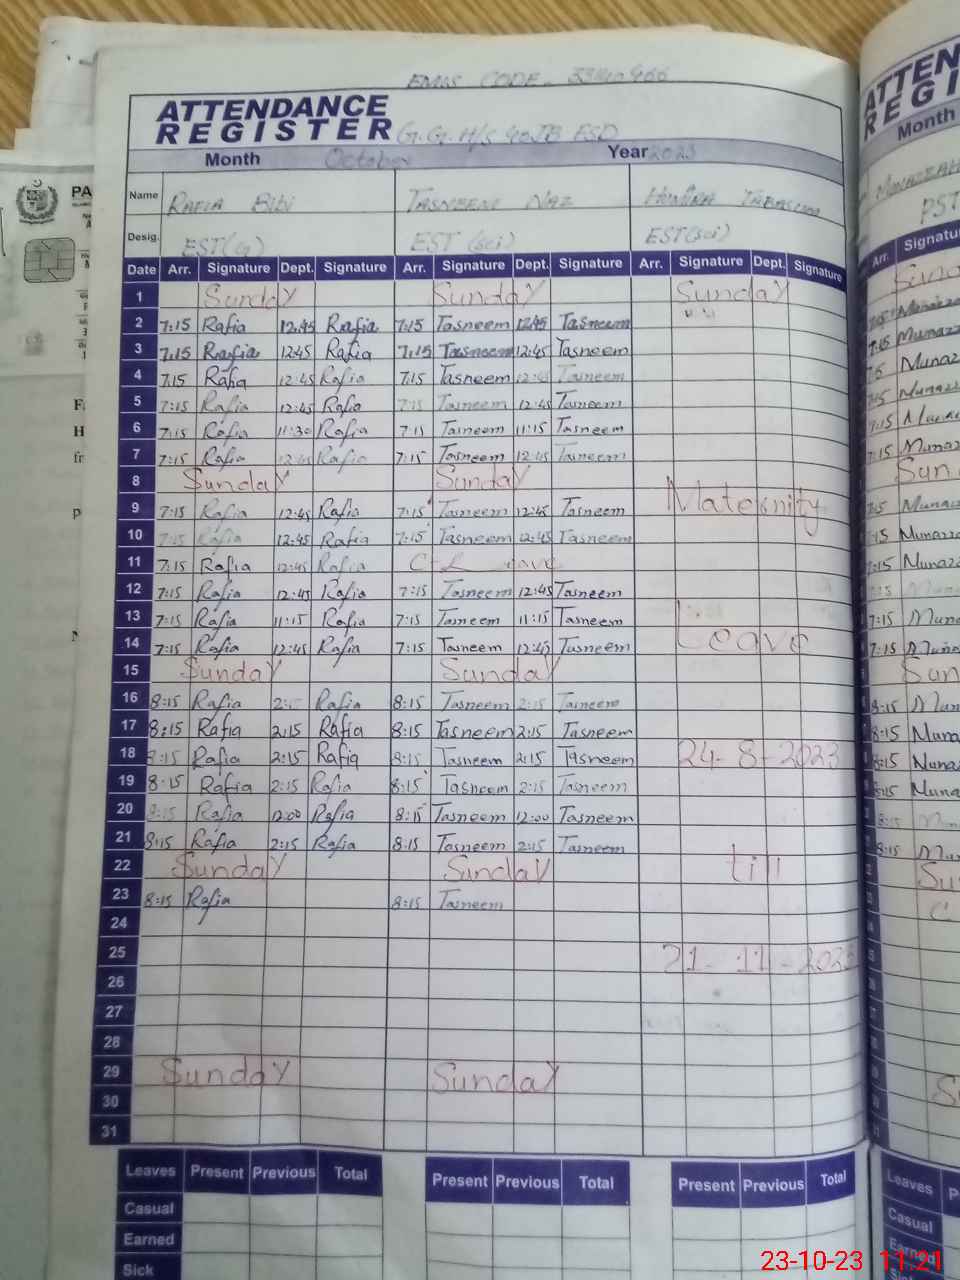 EMIS CODE-
ATTENDANCE
REGISTER G.G.H/S 40JB FSD
Month October Year 2023
Name RAFIA BIBI TASNEEM NAZ HUMIRA TABASSUM
Desig. EST(G) EST (sci) EST(sci)
Date Arr. Signature Dept. Signature Arr. Signature Dept. Signature Arr. Signature Dept. Signature
1 Sunday Sunday Sunday
2 7:15 Rafia 12:45 Rafia 7:15 Tasneem 12:45 Tasneem
3 7:15 Rafia 12:45 Rafia 7:15 Tasneem 12:45 Tasneem
4 7:15 Rafia 12:45 Rafia 7:15 Tasneem 12:45 Tasneem
5 7:15 Rafia 12:45 Rafia 7:15 Tasneem 12:45 Tasneem
6 7:15 Rafia 11:30 Rafia 7:15 Tasneem 11:15 Tasneem
7 7:15 Rafia 12:45 Rafia 7:15 Tasneem 12:45 Tasneem
8 Sunday Sunday
9 7:15 Rafia 12:45 Rafia 7:15 Tasneem 12:45 Tasneem Maternity
10 7:15 Rafia 12:45 Rafia 7:15 Tasneem 12:45 Tasneem
11 7:15 Rafia 12:45 Rafia leave
12 7:15 Rafia 12:45 Rafia 7:15 Tasneem 12:45 Tasneem
13 7:15 Rafia 11:15 Rafia 7:15 Tasneem 11:15 Tasneem
14 7:15 Rafia 12:45 Rafia 7:15 Tasneem 12:45 Tasneem Leave
15 Sunday Sunday
16 8:15 Rafia 2:15 Rafia 8:15 Tasneem 2:15 Tasneem
17 8:15 Rafia 2:15 Rafia 8:15 Tasneem 2:15 Tasneem
18 8:15 Rafia 2:15 Rafia 8:15 Tasneem 2:15 Tasneem 24-8-2023
19 8:15 Rafia 2:15 Rafia 8:15 Tasneem 2:15 Tasneem
20 8:15 Rafia 12:00 Rafia 8:15 Tasneem 12:00 Tasneem
21 8:15 Rafia 2:15 Rafia 8:15 Tasneem 2:15 Tasneem
22 Sunday Sunday till
23 8:15 Rafia 8:15 Tasneem
24
25 21-11-2023
26
27
28
29 Sunday Sunday
30
31
Leaves Present Previous Total Present Previous Total Present Previous Total
Casual
Earned
Sick
PA
ATTEN
REGI
Month
PST
Arr. Signatu
Leaves
Casual
Earned
23-10-23 11:21